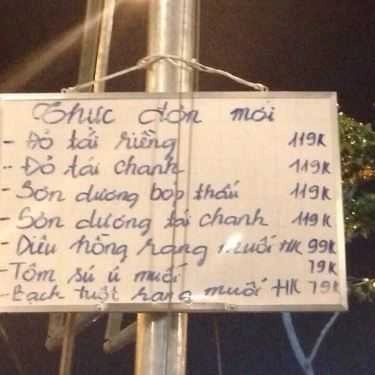 Thực đơn mới
- Đỏ tái riềng 119K
- Đỏ tái chanh 119K
- Sơn dương bóp thấu 119K
- Sơn dương tái chanh 119K
- Diêu hồng rang muối HK 99K
- Tôm sú ủ muối 79K
- Bạch tuột rang muối HK 79K